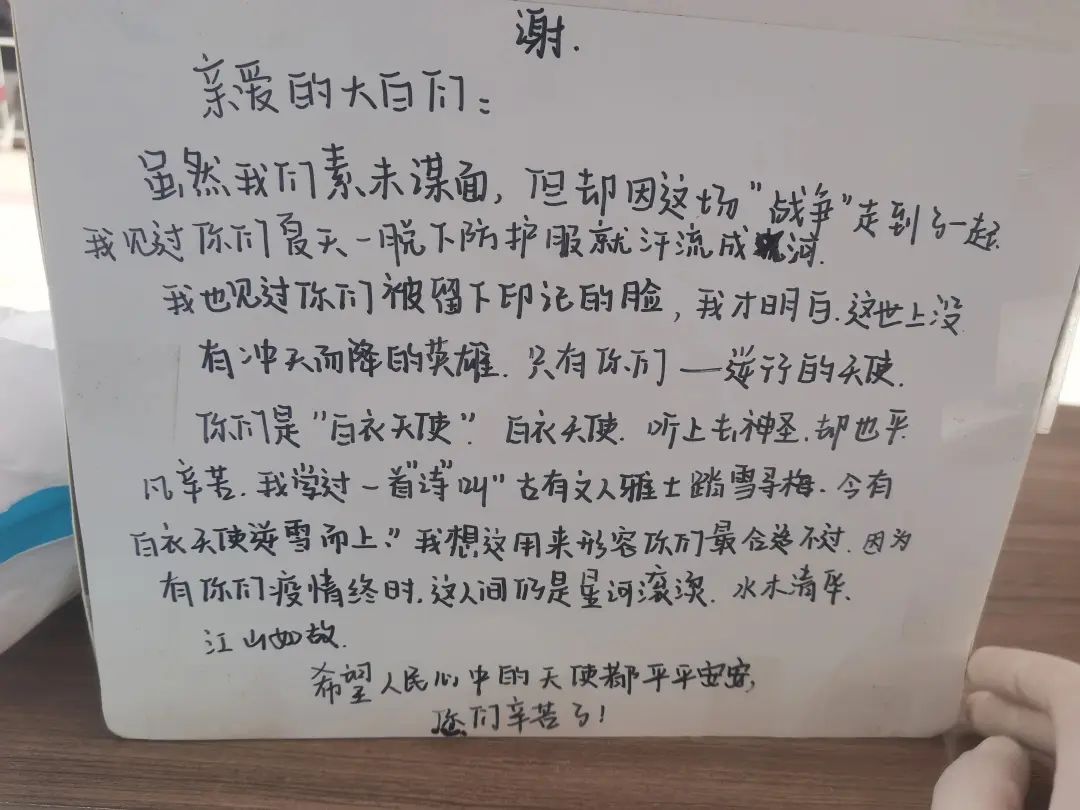 谢.
亲爱的大白们:
虽然我们素未谋面,但却因这场"战争"走到了一起.
我见过你们夏天一脱下防护服就汗流成河.
我也见过你们被留下印记的脸,我才明白.这世上没
有冲天而降的英雄.只有你们——逆行的天使.
你们是"白衣天使".白衣天使.听上去神圣.却也平
凡辛苦.我学过一首"诗"叫"古有文人雅士踏雪寻梅.今有
白衣天使逆雪而上."我想这用来形容你们最合适不过.因为
有你们疫情终时.这人间仍是星河滚滚.水木清华.
江山如故.
希望人民心中的天使都平平安安,
您们辛苦了!